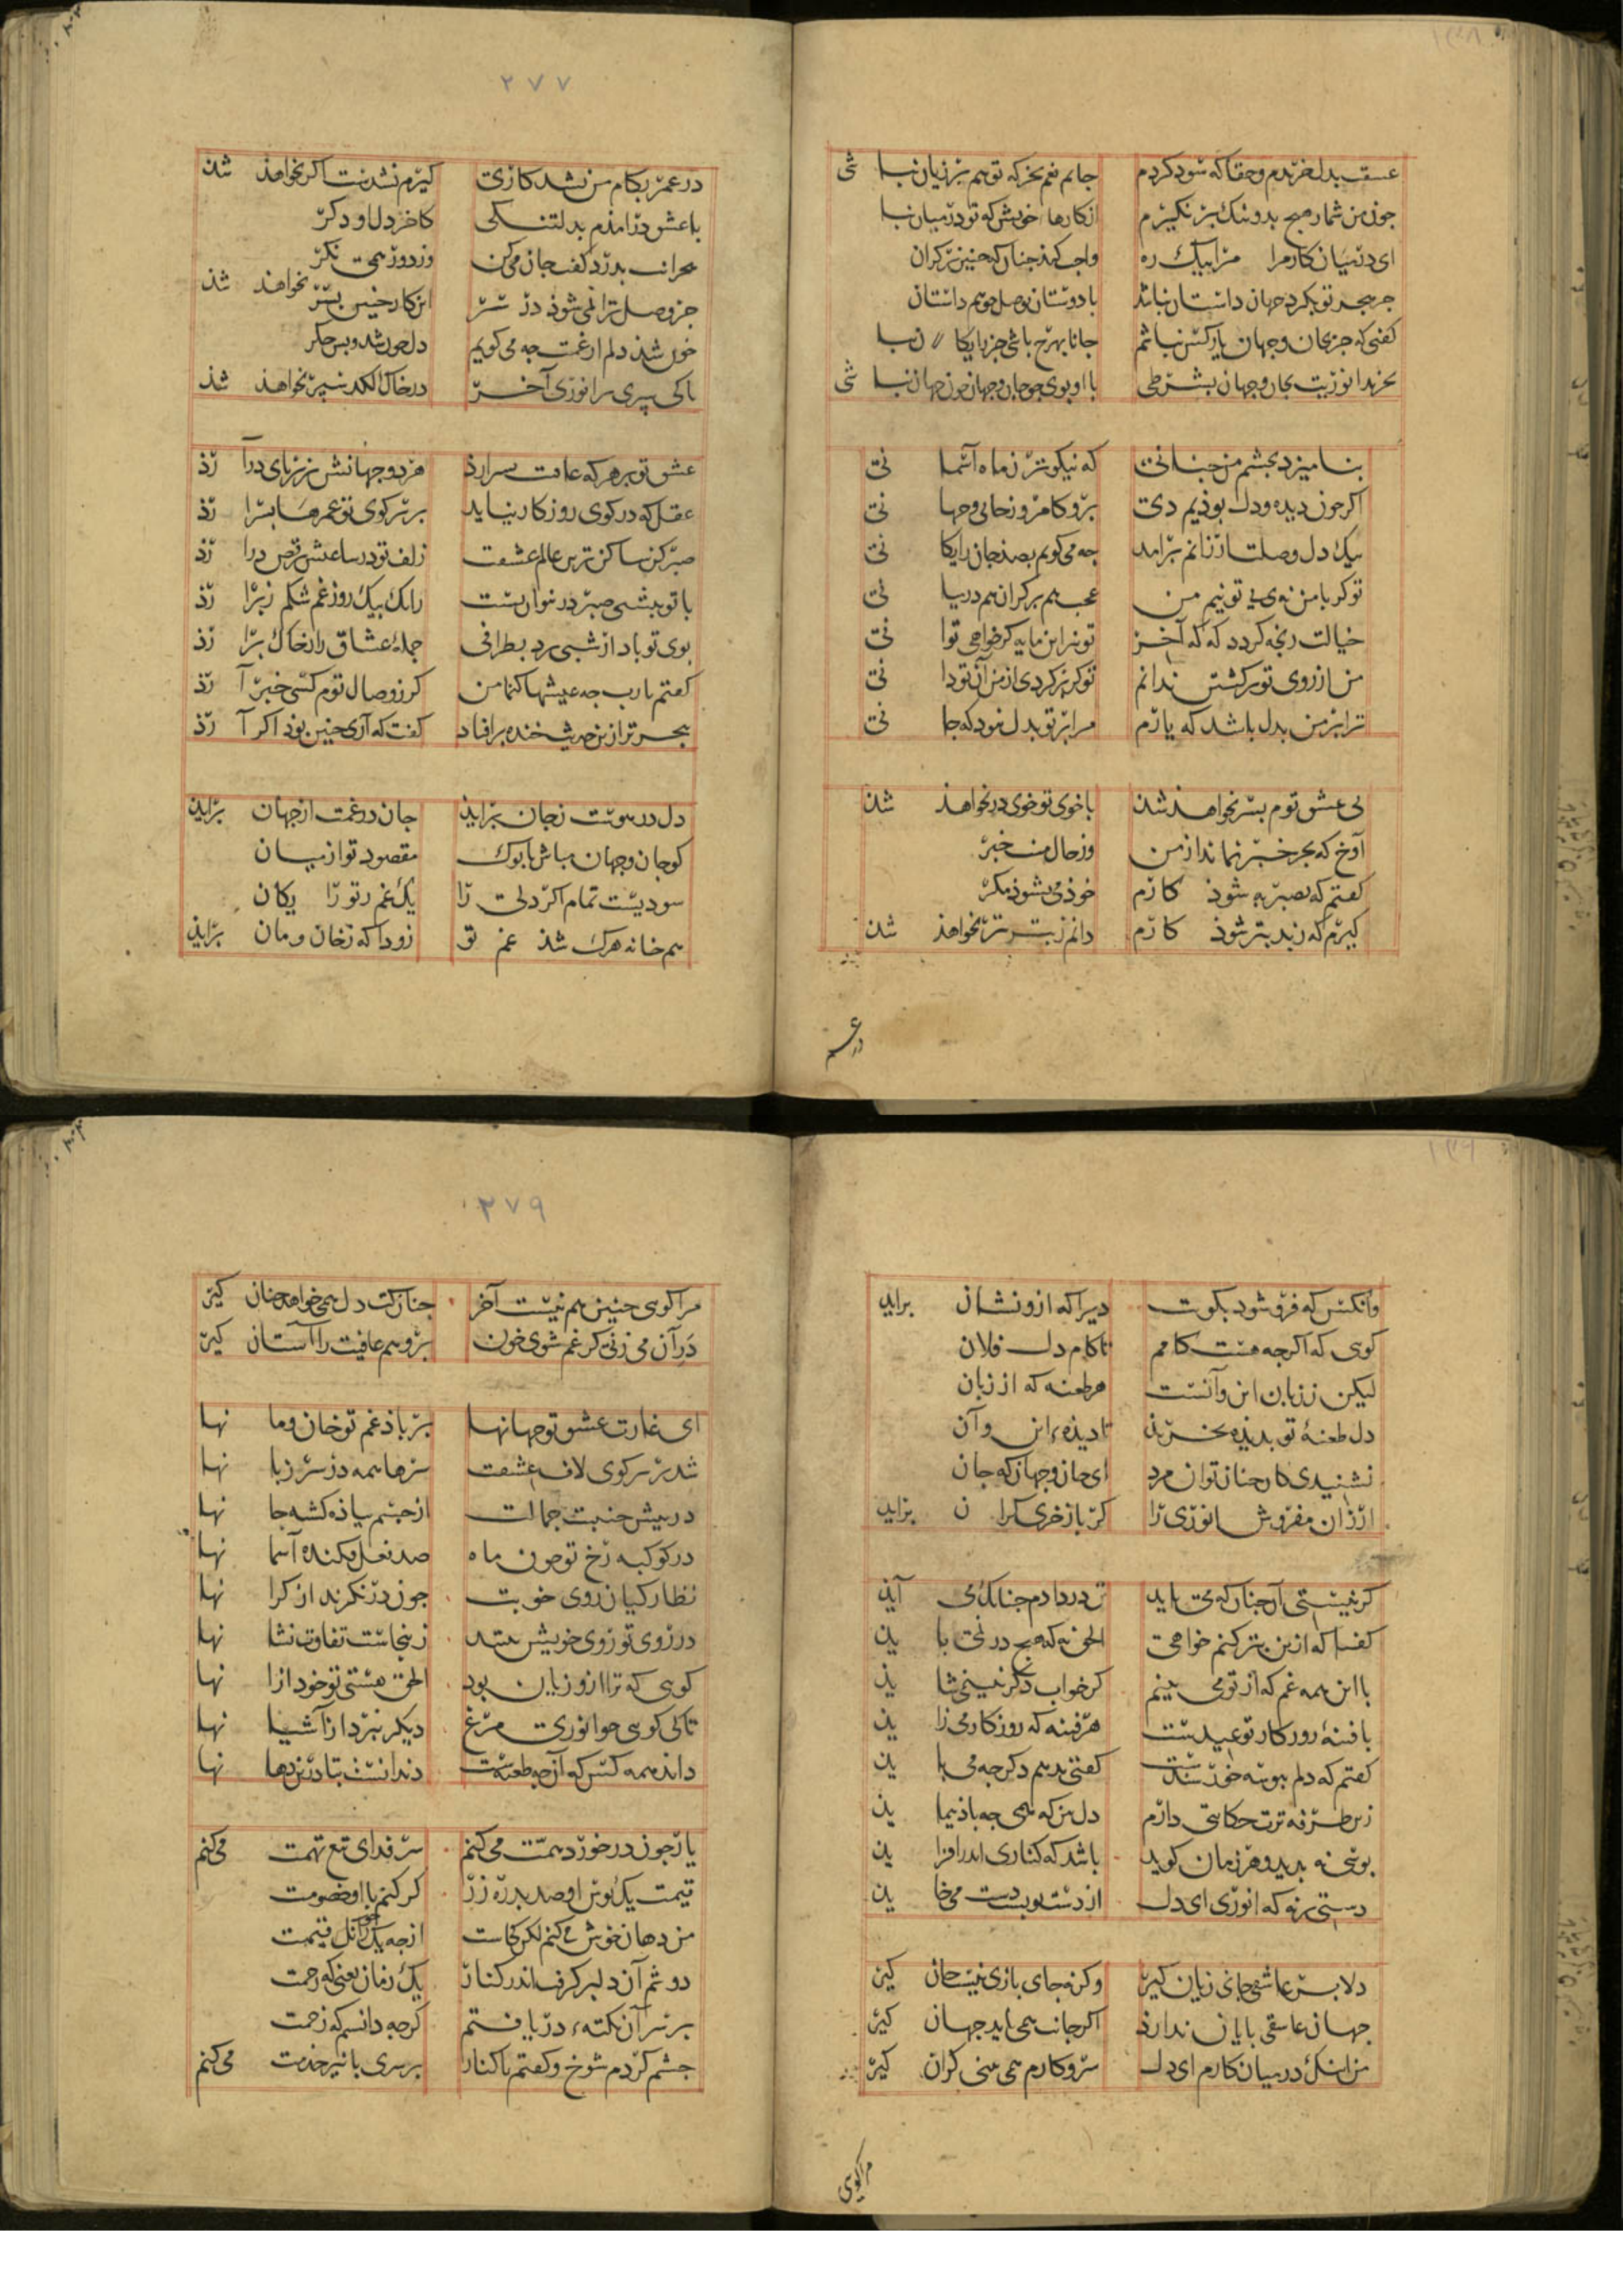 عشقت بدل خریدم و حقا که سود کردم جانم غم بخر که تو هم بر زیان نبا شی
چون من شمار هیچ بد و نیک بر نگیرم از کارها خویش که تو در میان نبا
ای در میان کار مرا مرا بیک ره واجب کند چنان که چنین بر کران
جز هجر تو بکرد جهان داستان نباشد با دوستان بوصل چو هم داستان
کفتی که جز بجان و جهان یار کس نباشم جانا بهرج باشی جز رایکا ن نبا
بخرید انوریت بجان و جهان بشرطی با او بوی چو جان و جهان چون جهان نبا شی
بنامیزد بچشم من چنانی که نیکوتر ز ماه آسما نی
اکر چون دیده و دل بوذیم دی برو کامروز جانی و جها نی
بیک دل وصلت ارزانم برامد چه می کویم بصد جان رایکا نی
تو کر با من نه ی بی تو نیم من عجب هم بر کران هم در میا نی
خیالت رنجه کردد که که آخر تو نیز این مایه کر خواهی توا نی
من از روی تو برکشتن ندانم تو کر بر کردی از من آن تو دا نی
ترا بر من بدل باشد که یارم مرا بر تو بدل نبود که جا نی
بی عشق توم بسر نخواهذ شذن با خوی تو خوی در نخواهذ شذن
آوخ که بجز خبر نماند از من وز حال منت خبر
کفتم که بصبر به شوذ کارم خوذ می نشوذ مکر
کیرم که ز بد بتر شوذ کارم دانم ز بتر بتر نخواهذ شذن
در عم
۲۷۷
در عمر بکام من نشد کاری کیرم نشدنت اکر نخواهذ شذن
با عشق درامذم بدلتنکی کاخر دل او دکر
هجرانت بدرد کفت جان می کن وز دور همی نکر
جز وصل ترا نمی شوذ در سر این کار خنین بسر نخواهذ شذن
خون شذ دلم از غمت چه می کویم دل خون شد و بس جکر
تا کی سپری مر انوری آخر در خاک لکد سپر نخواهذ شذ
عشق تو بر هر که عافیت بسر ارذ هر دو جهانش بزیر پای درآ رذ
عقل که در کوی روزکار نیاید بر سر کوی تو عمرها بسرا رذ
صبر کن ساکن ترین عالم عشقست زلف تو در ساعتش برقص درا رذ
با تو بشبی صبر در نتوان بست رانک بیک روز غم شکم زبرا رذ
بوی تو باد ار شبی برد بطرافی جملهٔ عشاق را ز خاک برا رذ
کفتم یارب چه عیشها کنما من کر ز وصال توم کسی خبر آ رذ
هجر تو از زیر حدیث خنده بر افتاد کفت که آری چنین بوذ اکر آ رذ
دل در هوست ز جان براید جان در غمت از جهان براید
کو جان و جهان مباش تا بوک مقصود تو از میان
سودیست تمام اکر دلی را یک غم ز تو رایکان
هم خانه هرک شذ غم تو زودا که ز خان و مان براید
وانکس که فرو شود بکویت دیرا که ازو نشان براید
کوی که اکر چه هست کامم تا کام دل فلان
لیکن ز زبان این و آنست هر طعنه که از زبان
دل طعنهٔ تو بدیذه بخریذ تا دیذه این و آن
نشنیدی کار چنان توان مرد ای جان و جهان که جان
ارزان مفروش انوری را کر باز خری کرا ن براید
کر نیستی آن چنان که می باید تن در دادم چنانک می آید
کفتا که ازین بتر کنم خواهی الحق نه که هیچ در نمی با ید
با این همه غم که از تو می بینم کر خواب دکر نبینمی شا ید
با فتنهٔ روزکار تو عیدست هر فتنه که روزکار می زا ید
کفتم که دلم ببوسه خرسندست کفتی ندهم دکر چه می با ید
زین طرفه ترت حکایتی دارم دل بین که همی چه باد پیما ید
بوسی نه بدید و هر زمان کوید باشد که کناری اندر افزا ید
دستی برنه که انوری ای دل از دست تو پشت دست می خا ید
دلا بر عاشقی جانی زیان کیر وکرنه جای بازی نیست جان کیر
جهان عاشقی پایان ندارد اکر جانت همی باید جهان کیر
مرا انک در میان کارم ای دل سر و کارم همی بینی کران کیر
مرا کویی
۲۷۹
مرا کویی چنین هم نیست آخر چنان کت دل همی خواهد چنان کیر
در آن می زنی کر غم شوی خون برو هم عافیت را آستان کیر
ای غارت عشق تو جهانها بر باذ غم تو خان و ما نها
شد بر سر کوی لاف عشقت سرها همه در سر زبا نها
در پیش جنیبت جمالت از چشم پیاذه کشته جا نها
در کوکبه رخ تو چون ماه صد نعل فکنده آسما نها
نظارکیان روی خوبت چون در نکرند از کرا نها
در روی تو روی خویش بینند زینجاست تفاوت نشا نها
کویی که ترا ازو زیان بود الحق هستی تو خود ازا نها
تا کی کویی چو انوری مرغ دیکر نپرد از آشیا نها
داند همه کس که آن چه طعنست دندانست بتا درین دها نها
یار چون در خورد همت می کنم سر فدای تیغ تهمت می کنم
قیمت یک بوس او صد بدره زر کر کنم با او خصومت
من دهان خوش می کنم لکن کجاست
دوشم آن دلبر کرفت اندر کنار یک زمان یعنی که رحمت
بر سر آن نکته در یافتم کر چه دانستم که زحمت
چشم کردم شوخ و کفتم تا کنار بر سری با نیز خدمت می کنم